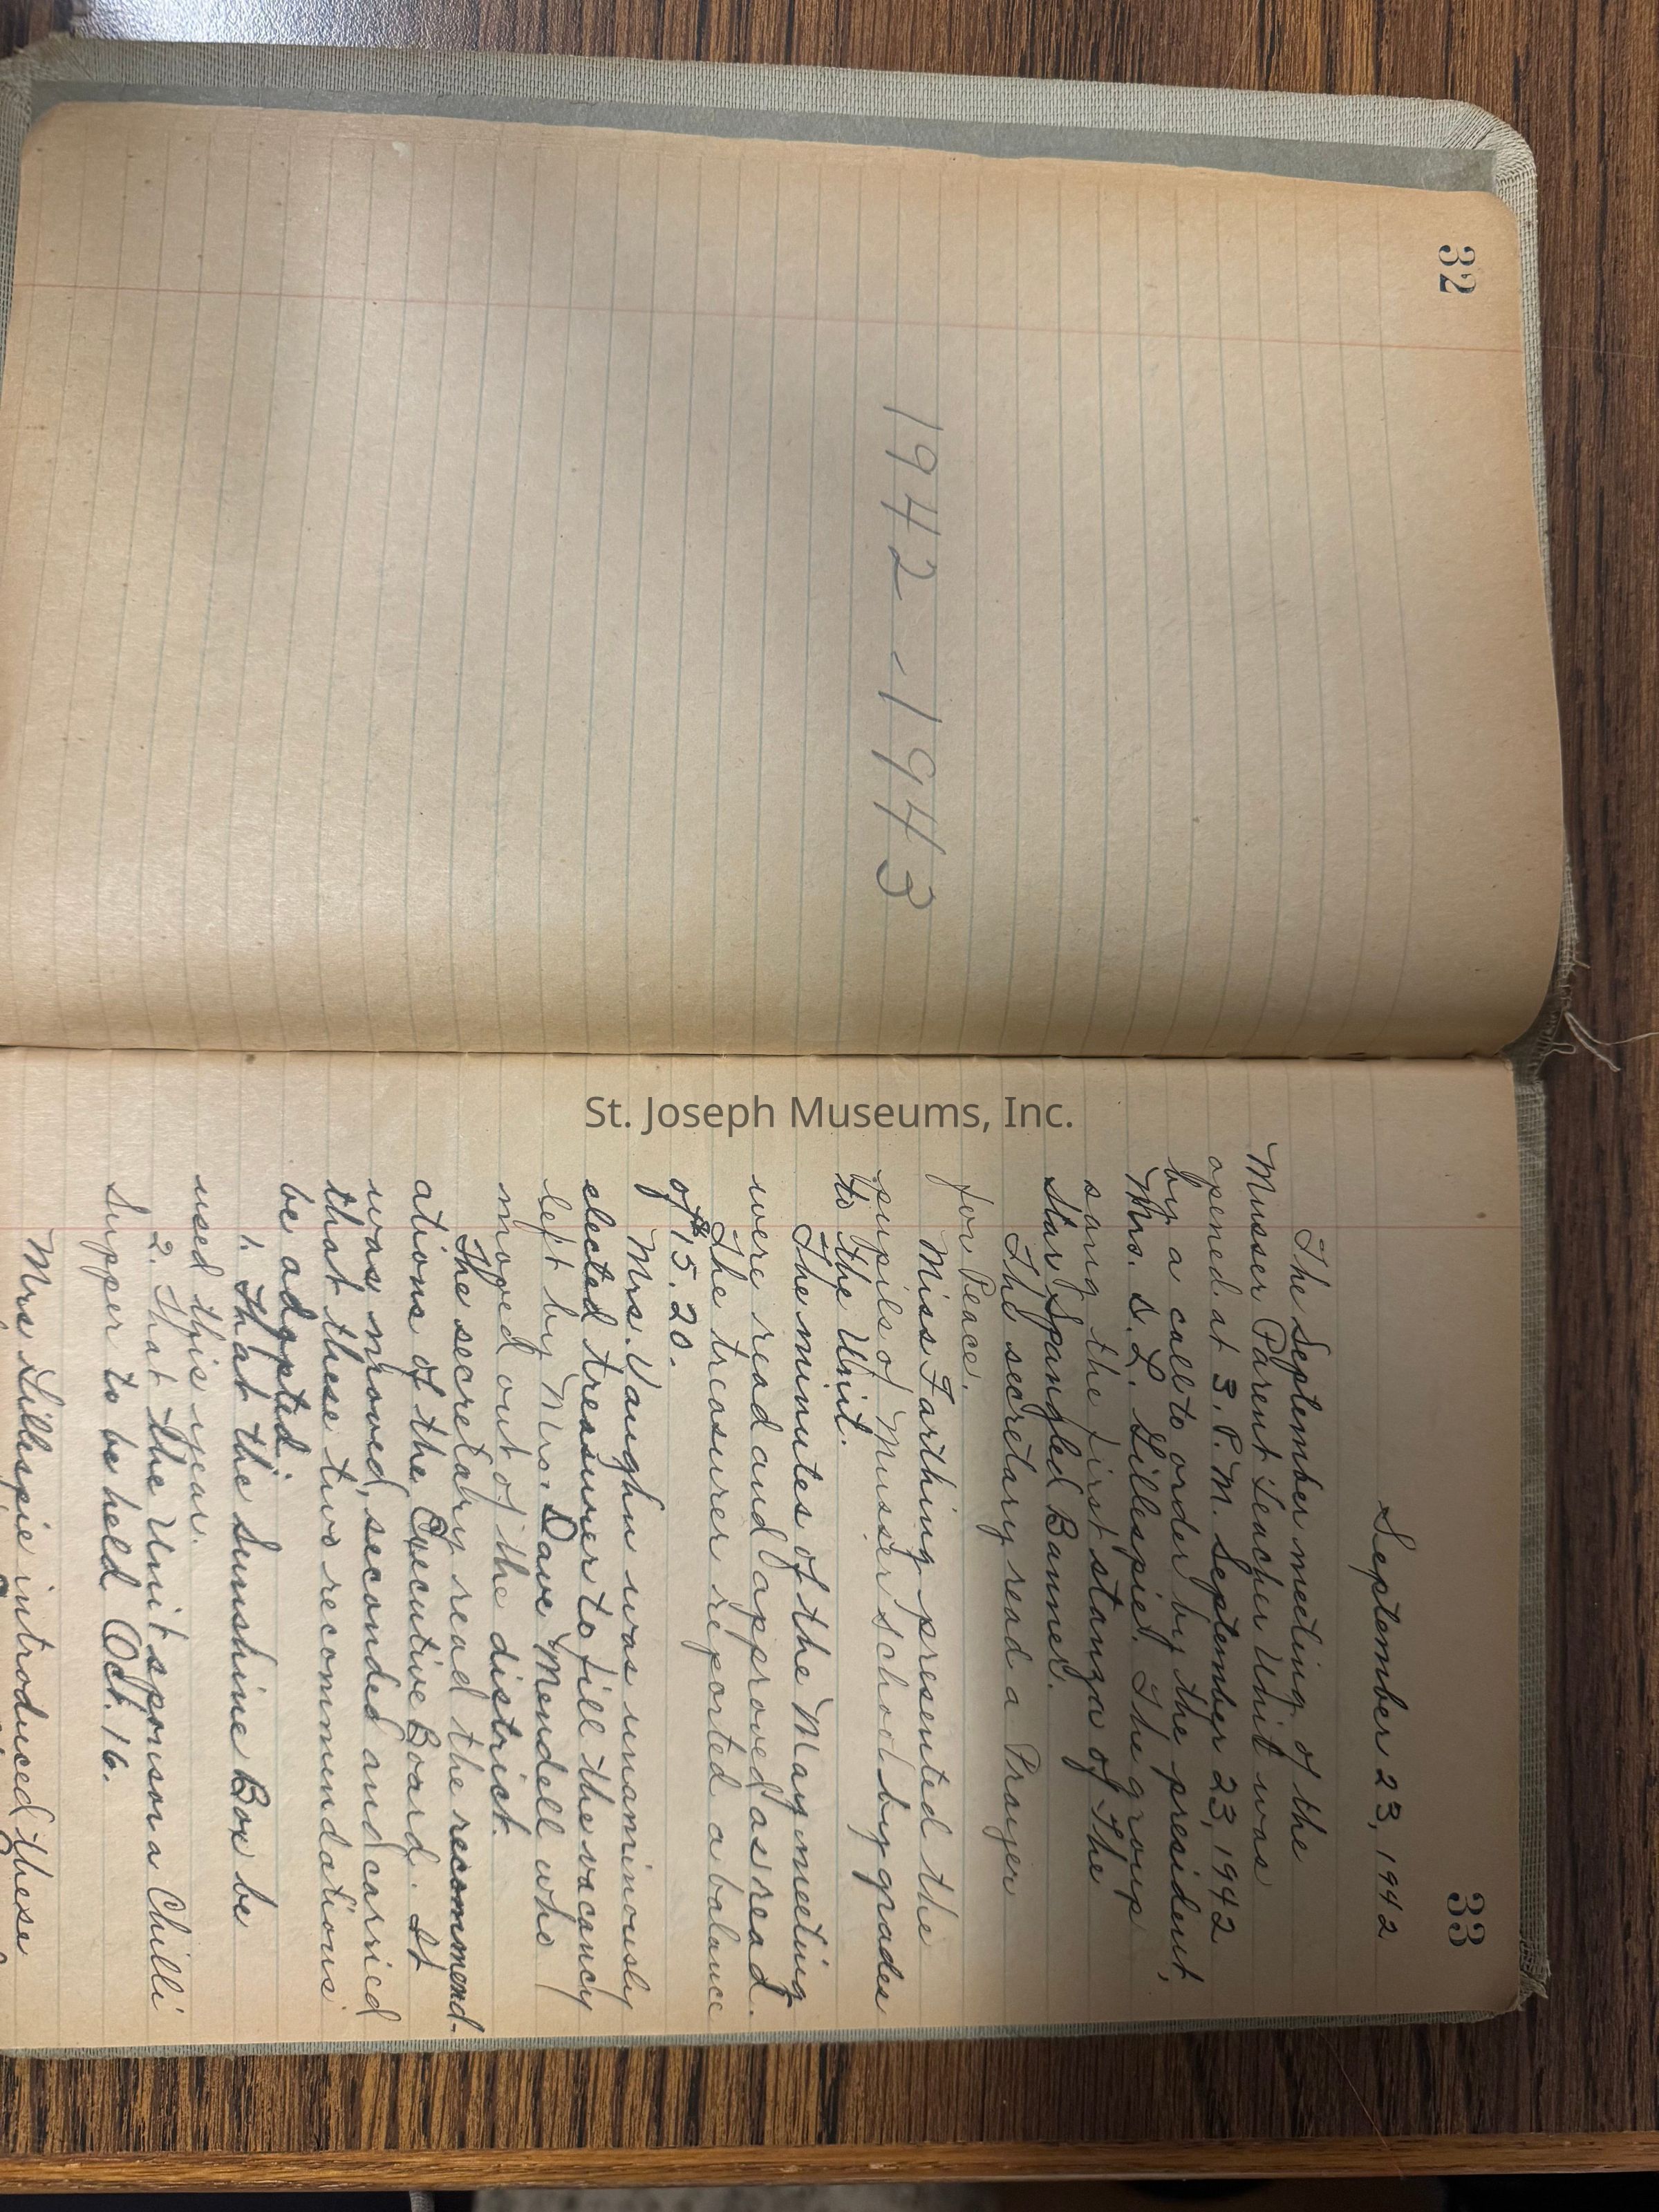 32
1942-1943
33
September 23, 1942
The September meeting of the
Musser Parent Teacher Unit was
opened at 3. P.M. September 23, 1942
by a call to order by the president,
Mrs. D. L. Gillespie. The group
sang the first stanza of The
Star Spangled Banner.
The secretary read a Prayer
for Peace.
Miss Farthing presented the
pupils of Musser school by grades
to the Unit.
The minutes of the May meeting
were read and approved as read.
The treasurer reported a balance
of $15.20.
Mrs. Vaughn was unaminously
elected treasurer to fill the vacancy
left by Mrs. Dave Mendell who
moved out of the district.
The secretary read the recommend-
ations of the Executive Board. It
was moved, seconded and carried
that these two recommendations
be adopted:
1. That the Sunshine Box be
used this year.
2. That the Unit sponsor a Chilli
Supper to be held Oct. 16.
Mrs Gillespie introduced these
St. Joseph Museums, Inc.